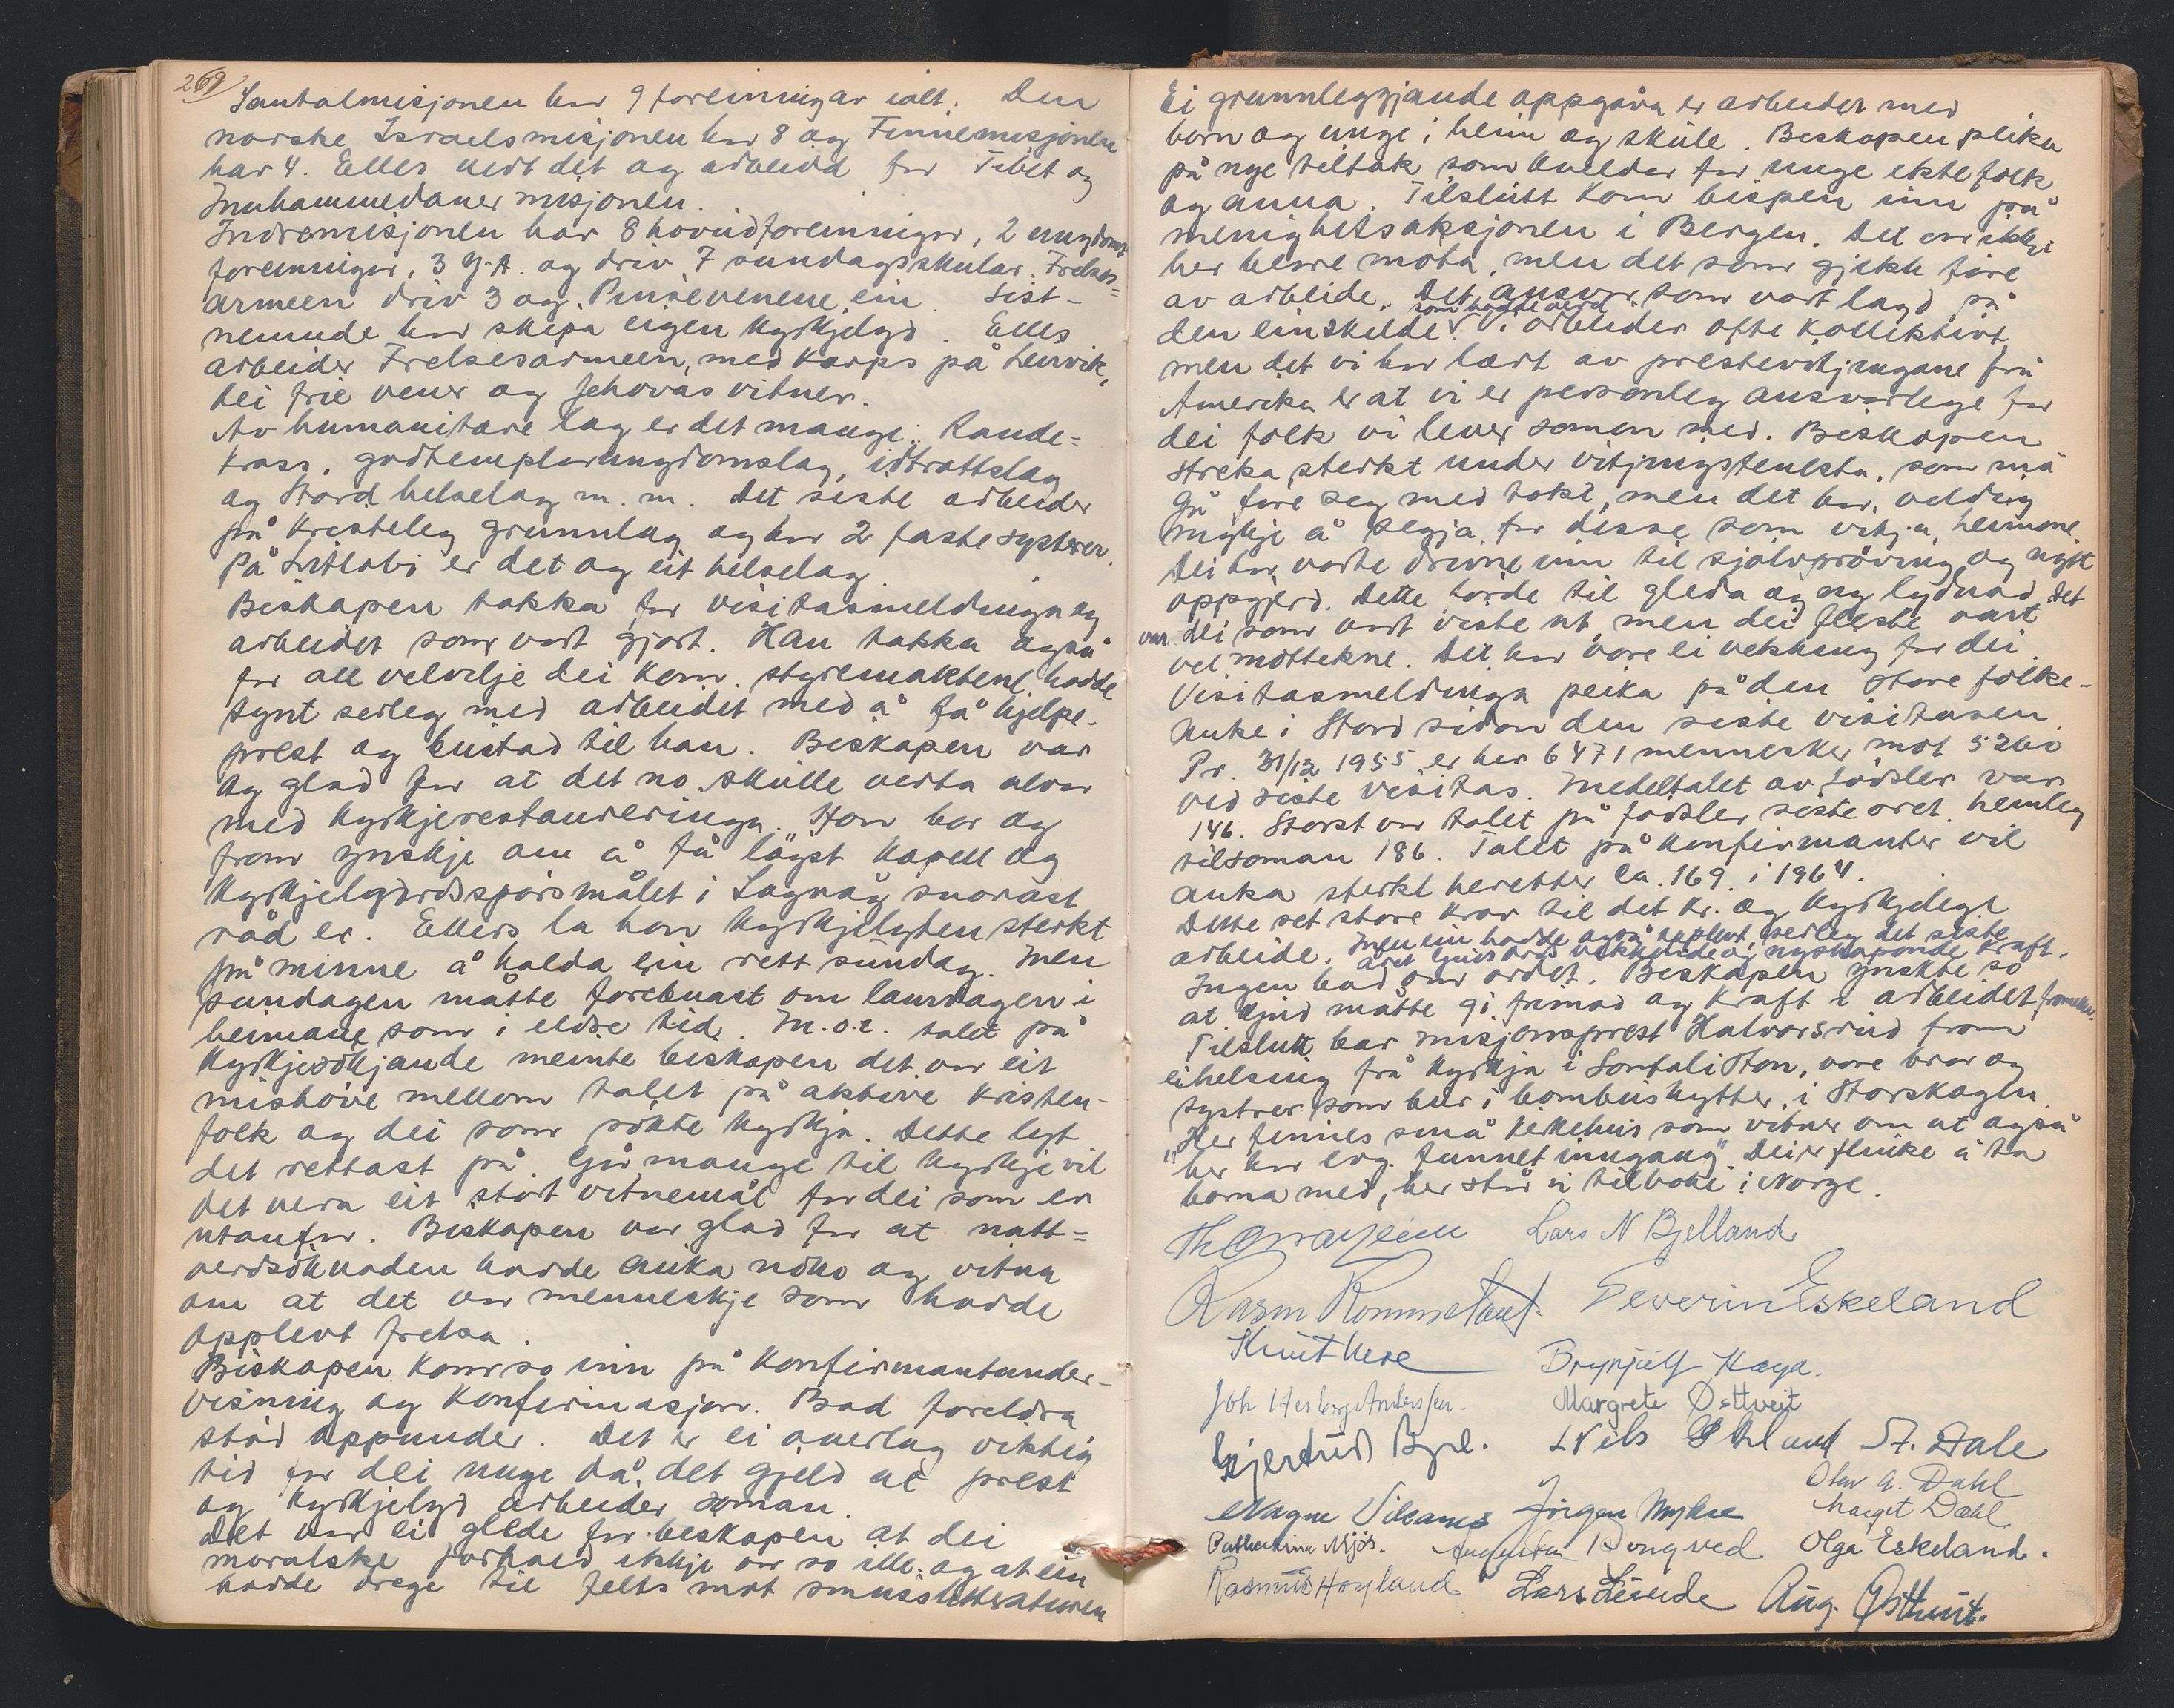 269
Santalmisjonen har 9 foreiningar ialt. Den
norske Israelsmisjonen har 8 og Finnemisjonen
har 4. Elles vert det og arbeidd for Tibet og
Muhammedanermisjonen.
Indremisjonen har 8 hovudforeiningar, 2 ungdoms
foreiningar, 3 Y.A. og driv 7 sundagsskular. Frelses=
armeen driv 3 og Pinsevenene ein. Sist-
nemnde har skipa eigen kyrkjelyd. Elles
arbeider Frelsesarmeen, med korps på Leirvik,
dei frie vener og Jehovas vitner.
Av humanitære lag er det mange: Raude=
kross, godtemplarungdomslag, idrottslag
og Stord helselag m. m. Det siste arbeider
på kristeleg grunnlag og har 2 faste systrer.
På Litlabø er det og eit helselag.
Biskopen takka for visitasmeldinga og
arbeidet som vart gjort. Han takka også
for all velvilje dei kom. styremaktene hadde
synt serleg med arbeidet med å få hjelpe-
prest og bustad til han. Biskopen var
og glad for at det no skulle verta alvor
med kyrkjerestaureringa. Han bar og
fram ynskje om å få løyst kapell og
kyrkjelgardsspörsmålet i Sagvåg snarast
råd er. Ellers la han kyrkjelyden sterkt
på minne å halda ein rett sundag. Men
sundagen måtte förebuast om laurdagen i
heimane som i eldre tid. M.o.t. talet på
kyrkjesökjande meinte biskopen det var eit
mishöve mellom talet på aktive kristen-
folk og dei som sökte kyrkja. Dette lyt
det rettast på. Går mange til kyrkje vil
det vera eit stort vitnemål for dei som er
utanfor. Biskopen var glad for at natt=
verdsöknaden hadde auka noko og vitna
om at det var menneskje som hadde
opplevt frelsa.
Biskopen kom so inn på konfirmantunder-
visning og konfirmasjon. Bad foreldra
stød oppunder. Det er ei överlag viktig
tid for dei unge då det gjeld at prest
og kyrkjelyd arbeider saman.
Det var ei glede for biskopen at dei
moralske forhold ikkje var so ille, og at ein
hadde drege til felts mot smusslitteraturen
Ei grunnleggjande oppgåva er arbeidet med
born og unge i heim og skule. Biskopen peika
på nye tiltak som kveldar for unge ektefolk
og anna. Tilslutt kom bispen inn på
menighetsaksjonen i Bergen. Det var ikkje
her berre møta, men det som gjekk före
av arbeide. Det ansvar som vart lagd på
som hadde verd
den einskilde. Vi arbeider ofte kollektivt,
men det vi har lært av prestevitjingane frå
Amerika er at vi er personleg ansvarlege for
dei folk vi lever saman med. Biskopen
streka sterkt under vitjingstenesta, som må
gå före seg med takt, men det har veldig
mykje å segja for disse som vitja heimane.
Dei har vorte drivne inn til sjølvprøving og nytt
oppgjerd. Dette förde til gleda og ny lydnad. Det
var dei som vart viste ut, men dei fleste vart
vel mottekne. Det har vore ei vekking for dei.
Visitasmeldinga peika på den store folke-
auke i Stord sidan den siste visitasen.
Pr. 31/12 1955 er her 6471 mennesker mot 5260
ved siste visitas. Medeltalet av födsler var
146. Störst var talet på födsler siste året. nemleg
tilsaman 186. Talet på konfirmanter vil
auka sterkt heretter ca. 169 i 1964.
Dette set store krav til det kr. og kyrkjelege
arbeide. Men ein hadde også opplevt, serleg det siste
året Guds ords vekkjande og nyskapande kraft.
Ingen bad om ordet. Biskopen ynskte so
at Gud måtte gi frimod og kraft i arbeidet framover.
Tilslutt bar misjonsprest Halvorsrud fram
ei helsing frå kyrkja i Santalistan, våre brør og
systrer som bur i bambushytter i Storskogen.
"Her finnes små kirkehus som vitner om at også
her har evg. funnet inngang". Dei er flinke å ta
borna med, her står vi tilbake i Norge.
Lars N Bjelland
Rasm Rommetveit. Severin Eskeland
Knut Here Brynjulf Høyd.
Joh Herborg Anderssen. Margrete Østtveit
Gjertrud Bysl. Nils St. Dale
Olav A. Dahl
Magne Jörgen Myhre Margit Dahl
Cathrine Mjøs. Rongved Olga Eskeland.
Rasmus Høyland Lars Aug. Østtveit.